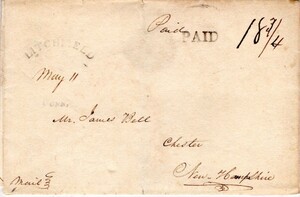 Paid
PAID
18 3/4
LITCHFIELD
May 11
Mr. James Bell
Chester
New Hampshire
Mail